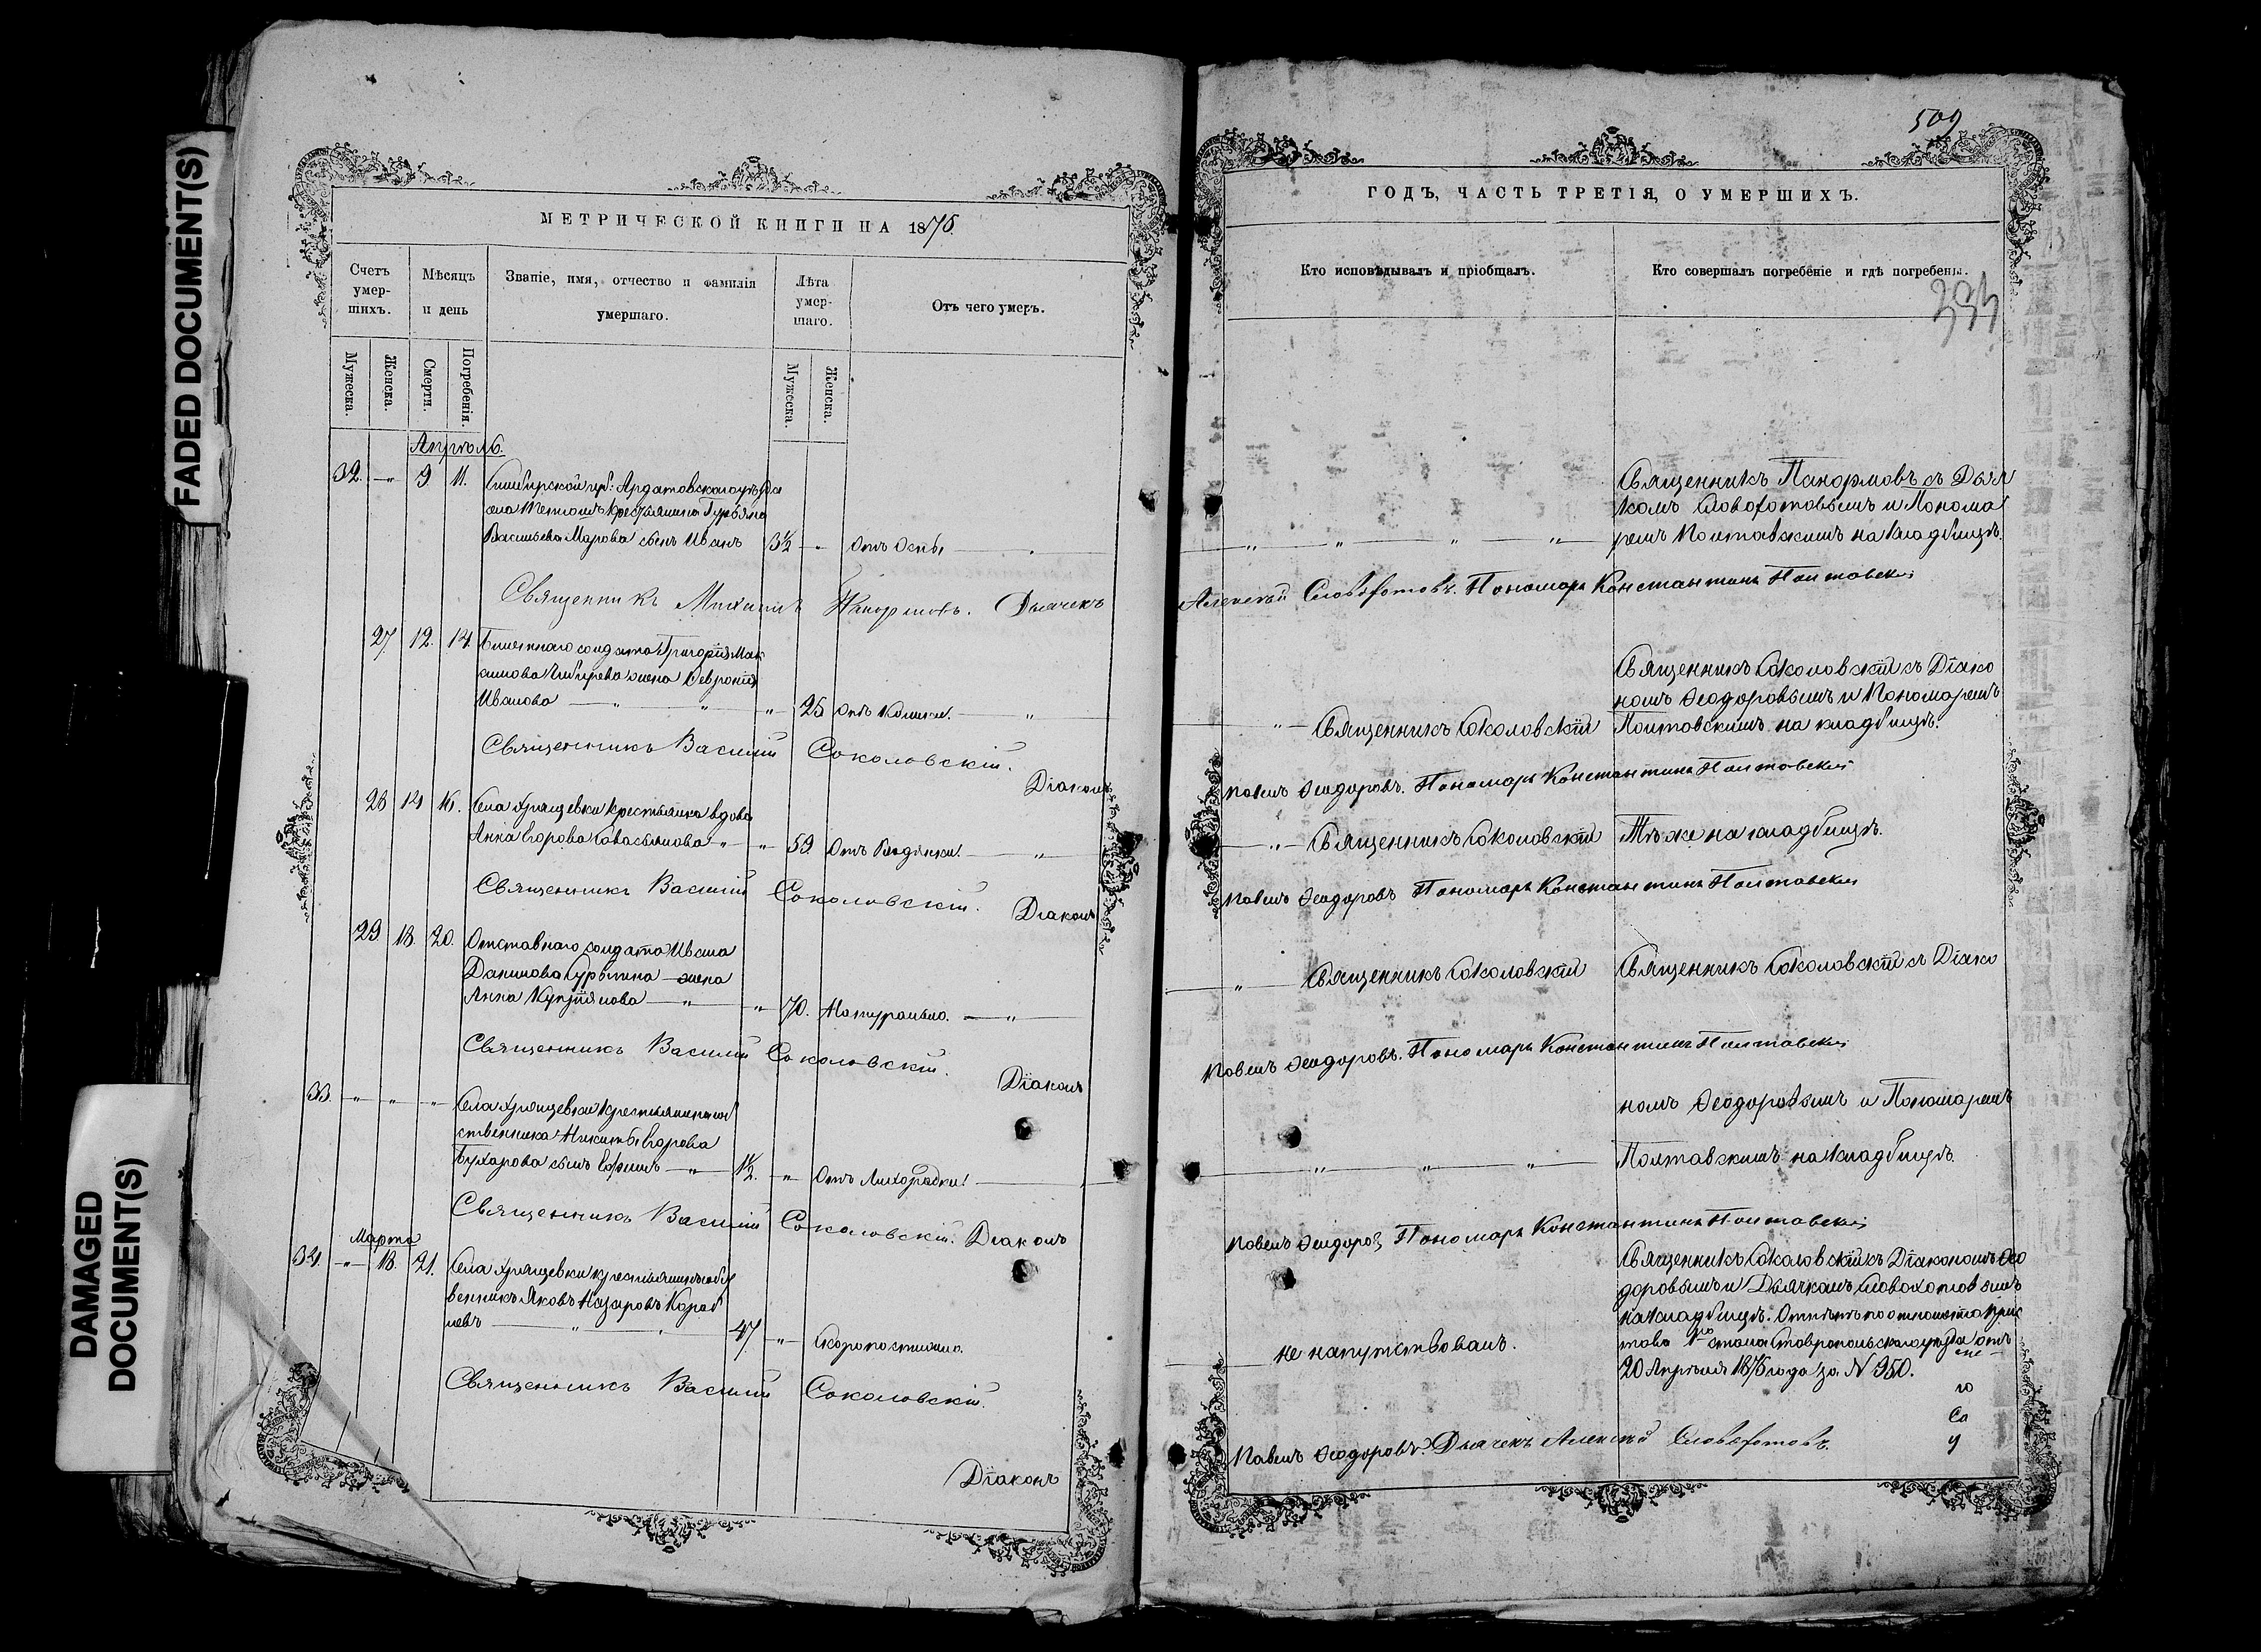 FADED DOCUMENT(S)
DAMAGED
DOCUMENT(S)
МЕТРИЧЕСКОЙ КНИГИ НА 1876
Счетъ умер-шихъ.
Мѣсяцъ и день
Званіе, имя, отчество и фамилія умершаго.
Лѣта умер-шаго.
Отъ чего умеръ.
Мужеска.
Женска.
Смерти.
Погребенія.
Мужеска.
Женска.
Апрѣль.
32. — " 9 11. Симбирской губ: Ардатовскаго уѣзда
села крестьянина Гурьяна
Васильева Марова сынъ Иванъ 3½ " Отъ Оспы
Священникъ Михаилъ Панормовъ. Дьячекъ
27. 12. 14. Билетнаго солдата Григорія Мак
симова жена Февронія
Иванова " " " 25 Отъ "
Священникъ Василій Соколовскій.
Діаконъ
28 14 16. Села Хрящевки крестьянина вдова
Анна Егорова " " 59. Отъ Водянки. "
Священникъ Василій Соколовскій.
Діаконъ
29 18. 20. Отставнаго солдата Ивана
Данилова жена
Анна Купріянова " " 70. Натурально. "
Священникъ Василій Соколовскій.
Діаконъ
33. " " " Села Хрящевки крестьянина соб
ственника Никиты Егорова
Бухарова сынъ Ефимъ " 1½. " Отъ Лихорадки.
Священникъ Василій Соколовскій. Діаконъ
Марта
34. " 18. 21. Села Хрящевки крестьянинъ собст
венникъ Яковъ Назаровъ Кораб
левъ " " 47 " Скоропостижно.
Священникъ Василій Соколовскій.
Діаконъ
509
ГОДЪ, ЧАСТЬ ТРЕТІЯ, О УМЕРШИХЪ.
Кто исповѣдывалъ и пріобщалъ.
Кто совершалъ погребеніе и гдѣ погребены.
Священникъ Панормовъ съ Дьяч
комъ Словохотовымъ и Понома
" " " " ремъ Полтавскимъ на кладбищѣ.
Алексѣй Словохотовъ. Пономарь Константинъ Полтавскій
Священникъ Соколовскій съ Діако
номъ Ѳеодоровымъ и Пономаремъ
" Священникъ Соколовскій Полтавскимъ на кладбищѣ.
Павелъ Ѳеодоровъ. Пономарь Константинъ Полтавскій
" Священникъ Соколовскій Тѣ же на кладбищѣ.
Павелъ Ѳеодоровъ Пономарь Константинъ Полтавскій
" Священникъ Соколовскій Священникъ Соколовскій съ Діако
Павелъ Ѳеодоровъ. Пономарь Константинъ Полтавскій
номъ Ѳеодоровымъ и Пономаремъ
" " " Полтавскимъ на кладбищѣ.
Павелъ Ѳеодоровъ Пономарь Константинъ Полтавскій
Священникъ Соколовскій съ Діакономъ Ѳео
доровымъ и Дьячкомъ Словохотовымъ
на кладбищѣ. Отпѣтъ по отношенію Прис
не напутствованъ. това 1го стана Ставропольскаго уѣзда отъ
20 Апрѣля 1876 года за N 350.
Павелъ Ѳеодоровъ. Дьячекъ Алексѣй Словохотовъ.